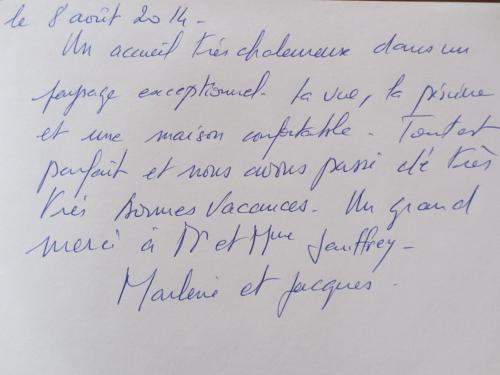 le 8 août 2014-
Un accueil très chaleureux dans un
paysage exceptionnel. la vue, la piscine
et une maison confortable - Tout est
parfait et nous avons passé de très
très bonnes vacances. Un grand
merci à Mr et Mme Jauffrey-
Marlène et Jacques.